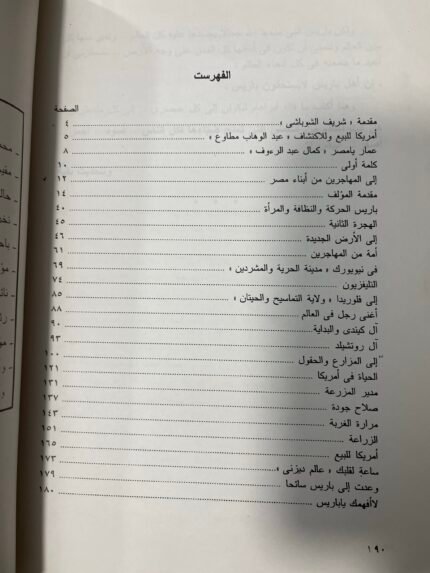 الفهرست
الصفحة
مقدمة « شريف الشوباشى » ٤
أمريكا للبيع وللاكتشاف « عبد الوهاب مطاوع » ٥
عمار يامصر « كمال عبد الرءوف » ٨
كلمة أولى ١٠
إلى المهاجرين من أبناء مصر ١٢
مقدمة المؤلف ١٤
باريس الحركة والنظافة والمرأة ٤٠
الهجرة الثانية ٤٥
إلى الأرض الجديدة ٤٦
أمة من المهاجرين ٦١
فى نيويورك « مدينة الحرية والمشردين » ٦٩
التليفزيون ٧٤
إلى فلوريدا « ولاية التماسيح والحيتان » ٨٥
أغنى رجل فى العالم ٨٨
آل كيندى والبداية ٩٠
آل روتشيلد ٩٣
إلى المزارع والحقول ١٠٠
الحياة فى أمريكا ١٢١
مدير المزرعة ١٣١
صلاح جودة ١٣٧
مرارة الغربة ١٤٣
الزراعة ١٥١
أمريكا للبيع ١٦٥
ساعة لقلبك « عالم ديزنى » ١٧٣
وعدت إلى باريس سائحا ١٧٩
لاأفهمك ياباريس ١٨٠
١٩٠